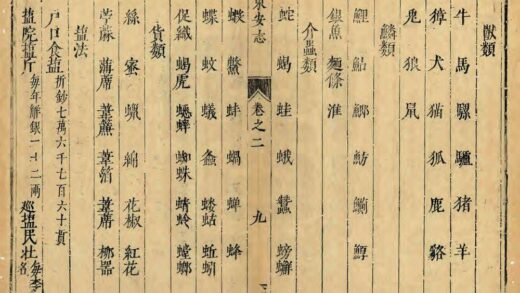 獸類
牛 馬 騾 驢 猪 羊
獐 犬 猫 狐 鹿 貉
兎 狼 鼠
鱗類
鯉 鮎 魴 鱒
銀魚 麵條 淮
介蟲類
蛇 蝎 蛙 蛾 蠶 螃蠏
東安志 卷之二 九
鱉 蚌 蝸 蟬 蜂
蝶 蚊 蟻 螽 螻蛄 蚯蚓
促織 蝎虎 蟋蟀 蜘蛛 蜻蛉 螳螂
貨類
絲 蜜 蠟 綿 花椒 紅花
蒲蓆 葦箔 葦蓆 柳器
盐法
戶口食盐 折鈔七萬六千七百六十貫
盐院盐斤 每年解銀一十二兩 巡盐民壮 每季 名